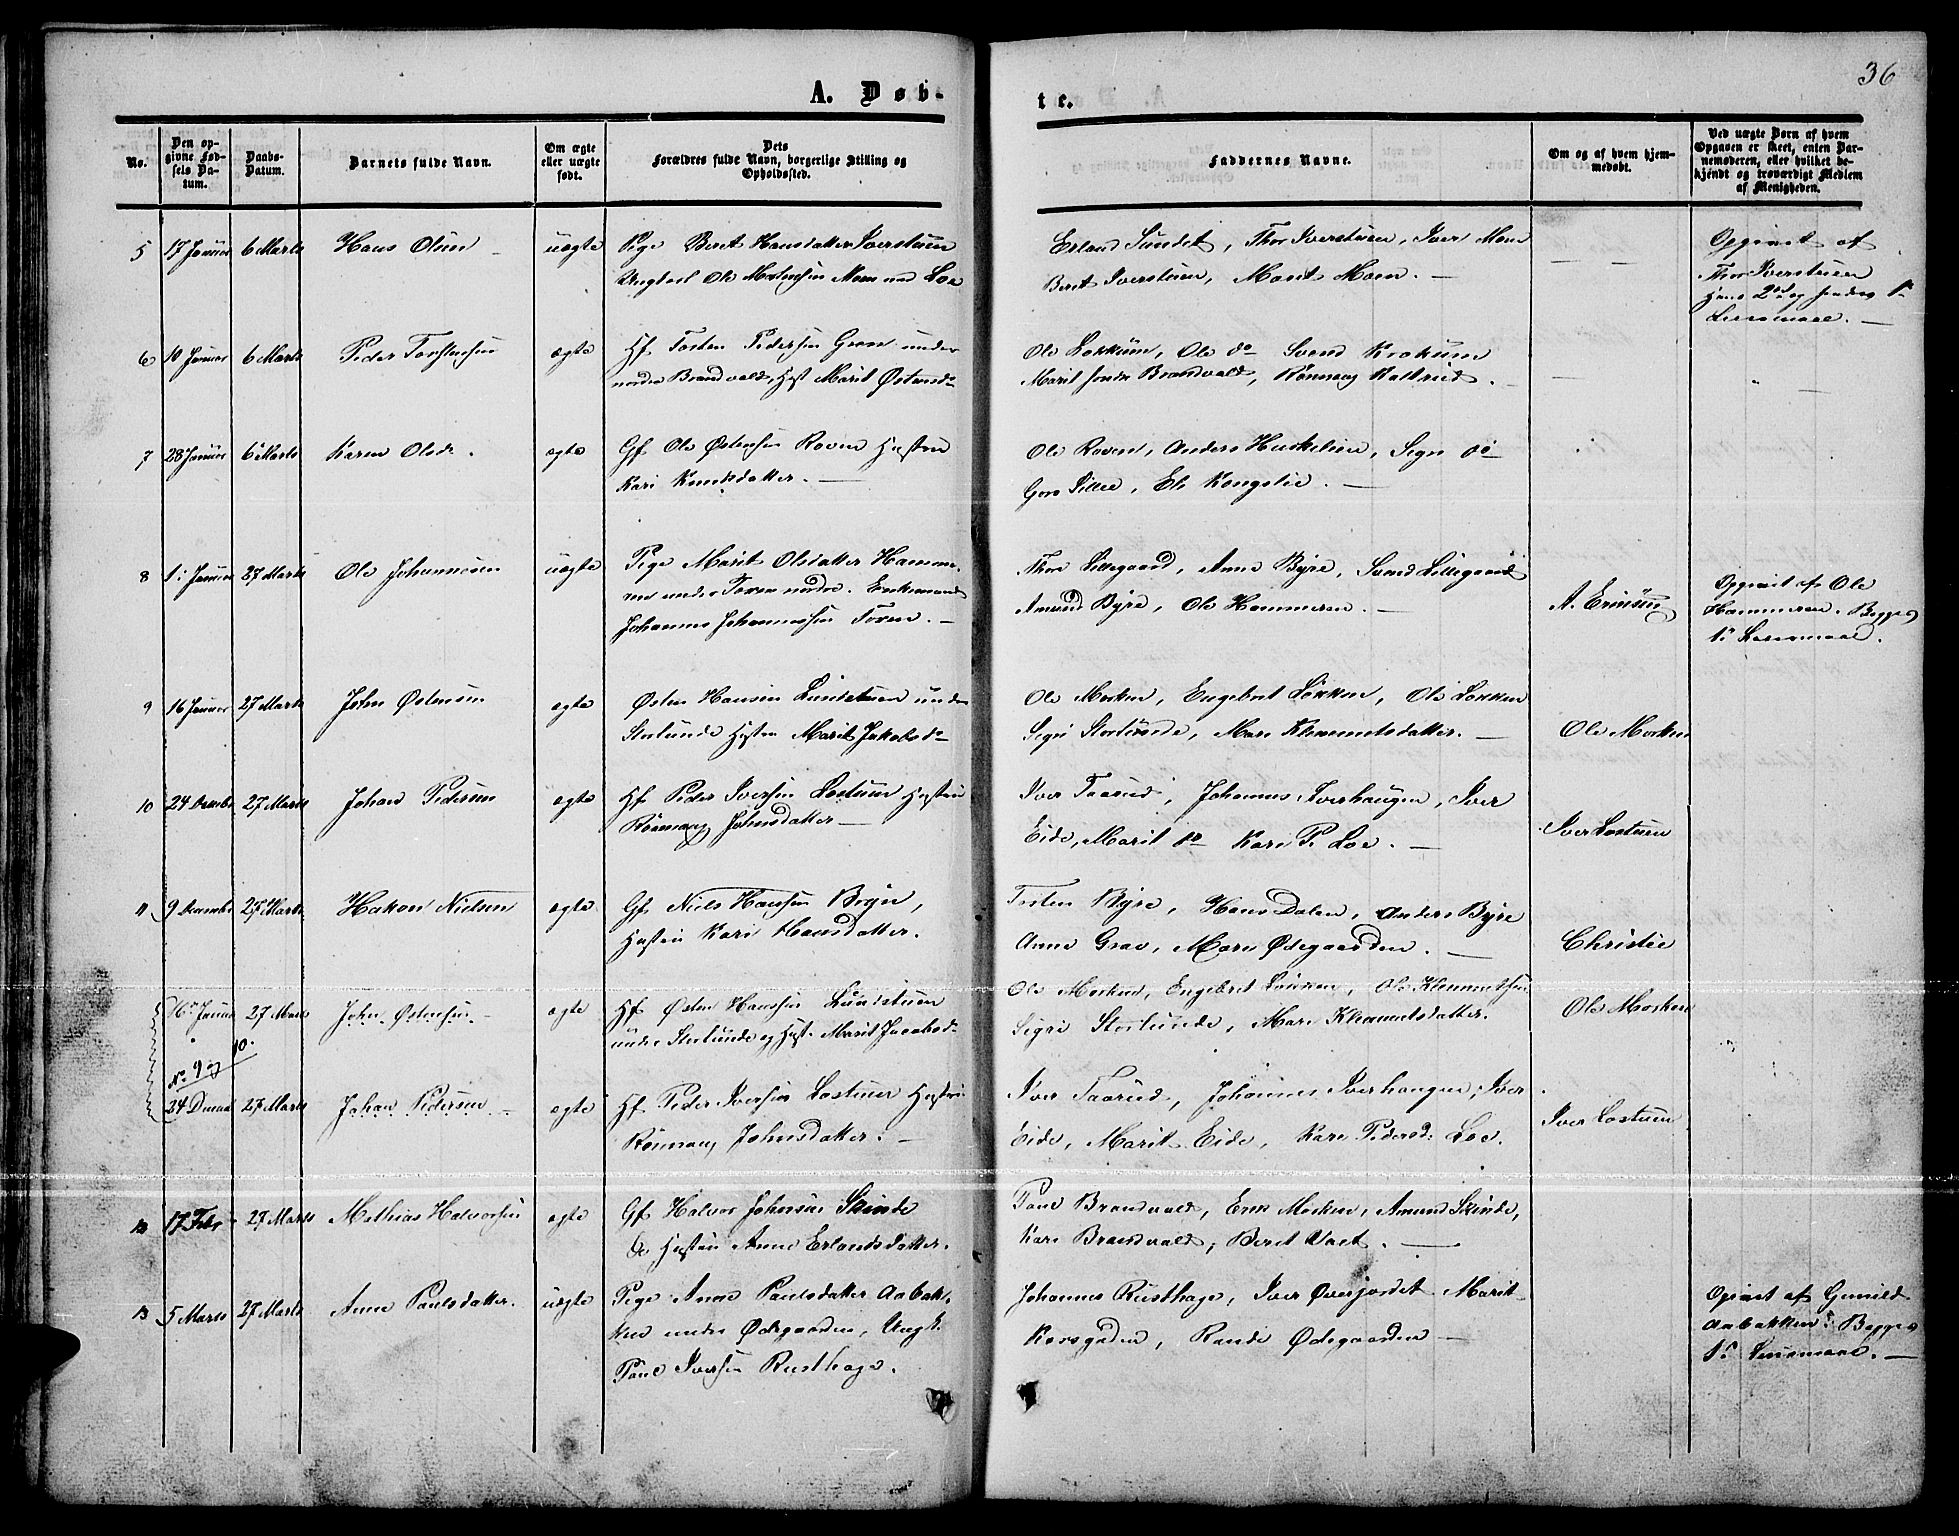 36
A. Døb-
te.
No.
Den op-
givne Fød-
sels Da-
tum.
Daabs-
Datum.
Barnets fulde Navn.
Om ægte
eller uægte
født.
Dets
Forældres fulde Navn, borgerlige Stilling og
Opholdssted.
Faddernes Navne.
Om og af hvem hjem-
medøbt.
Ved uægte Børn af hvem
Opgaven er skeet, enten Bar-
nemoderen, eller hvilket be-
kjendt og troværdigt Medlem
af Menigheden.
5 17 Januar 6 Marts Hans Olsen uægte Pige Beret Hansdatter Iverstuen
Ungkarl Ole Mortensen Moen ved Loe
Erland Sundet, Thor Iverstuen, Iver Moen
Beret Iverstuen, Marit Moen. —
Opgivet af
Thor Iverstuen
Hans 2d og hendes 1ste
Leiermaal. —
6 10 Januar 6 Marts Peder Torstensen ægte Hf Torsten Pedersen Groen under
nordre Brandvold, Hust Marit Østensdr
Ole Løkkum, Ole do Svend Krokum
Marit søndre Brandvold, Rønnaug Kaltrud.
7 28 Januar 6 Marts Karen Olsdr. ægte Gf Ole Østensen Roven Hustru
Kari Knudsdatter. —
Ole Roven, Anders Huskelien, Sigri do
Goro Lillee, Eli Kongslie. —
8 1. Januar 27 Marts Ole Johannesen uægte Pige Marit Olsdatter Hamme-
ren under Foren nordre. Enkemand
Johannes Johannessen Foren. —
Thore Lillegaard, Anne Byre, Svend Lillegaard
Amund Byre, Ole Hammeren. —
A. Erensen
Opgivet af Ole
Hammeren. Begges
1ste Leiermaal.
9 16 Januar 27 Marts John Østensen ægte Østen Hansen Lundstuen under
Storlunde Hustru Marit Jakobsdr
Ole Morken, Engebret Løkken, Ole Løkken
Sigri Storlunde, Mari Klemmetsdatter. —
Ole Morken
10 24 Decembr 27 Marts Johan Pedersen ægte Hf Peder Iversen Lostuen Hustru
Rønnaug Johnsdatter —
Iver Taarud, Johannes Iverhaugen, Iver
Eide, Marit do Kari P. Loe. —
Iver Lostuen
11 9 Decembr 27 Marts Hakon Nielsen ægte Gf Niels Hansen Bryn,
Hustru Kari Hansdatter.
Torsten Byre, Hans Dalen, Anders Byre
Anne Grav, Mari Ødegaarden. —
Christie
16 Januar 27 Marts John Østensen ægte Hf Østen Hansen Lundstuen
under Storlunde og Hust. Marit Jacobsdr
Ole Morken, Engebret Løkken, Ole Klemmetsen
Sigri Storlunde, Mari Klemmetsdatter.
Ole Morken
No 9 og 10.
24 Decembr 27 Marts Johan Pedersen ægte Hf Peder Iversen Lostuen Hustru
Rønnaug Johnsdatter. —
Iver Taarud, Johannes Iverhaugen, Iver
Eide, Marit Eide, Kari Pedersd. Loe.
Iver Lostuen
12 17 Febr 27 Marts Mathias Halvorsen ægte Gf Halvor Johnsen Skinde
og Hustru Anne Erlandsdatter.
Paul Brandvold, Erik Morken, Amund Skinde,
Kari Brandvold, Beret Vaet. —
13 5 Marts 27 Marts Anne Paulsdatter. uægte Pige Anne Paulsdatter Aabak-
ken under Ødegaarden, Ungk.
Paul Iversen Rusthage.
Johannes Rusthage, Iver Øverjordet Marit
Korsgaden, Randi Ødegaarden —
Opgivet af Gunild
Aabakken. Begges
1ste Leiermaal. —